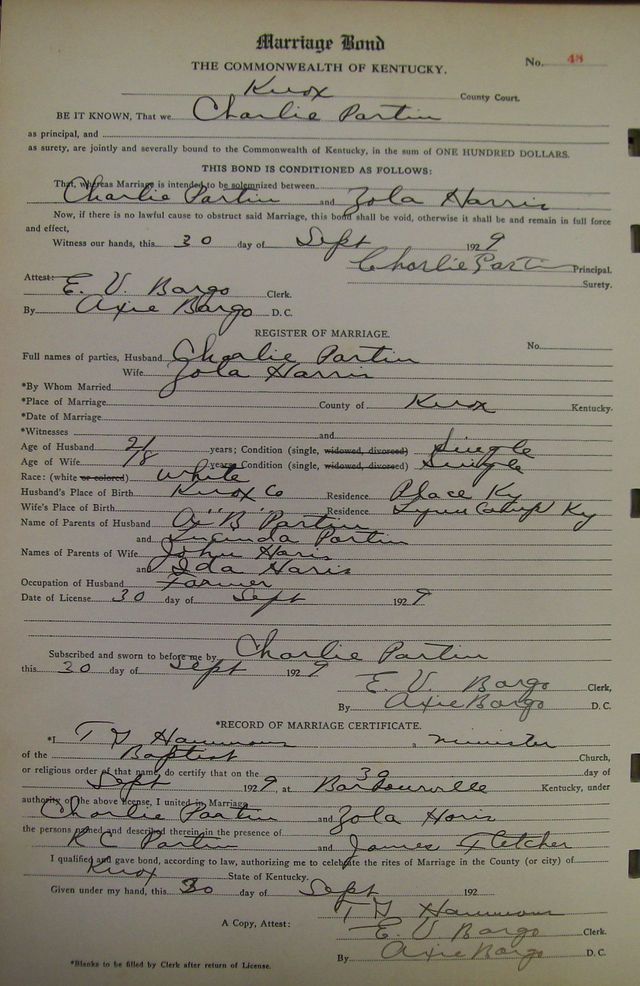 Marriage Bond
THE COMMONWEALTH OF KENTUCKY.
No. 48
Knox County Court.
BE IT KNOWN, That we Charlie Partin
as principal, and
as surety, are jointly and severally bound to the Commonwealth of Kentucky, in the sum of ONE HUNDRED DOLLARS.
THIS BOND IS CONDITIONED AS FOLLOWS:
That, whereas Marriage is intended to be solemnized between
Charlie Partin and Zola Harris
Now, if there is no lawful cause to obstruct said Marriage, this bond shall be void, otherwise it shall be and remain in full force
and effect,
Witness our hands, this 30 day of Sept 1929
Charlie Partin Principal.
Surety.
Attest: E. V. Bargo Clerk.
By Axie Bargo D. C.
REGISTER OF MARRIAGE.
Full names of parties, Husband Charlie Partin No.
Wife Zola Harris
*By Whom Married
*Place of Marriage County of Knox Kentucky.
*Date of Marriage
*Witnesses and
Age of Husband 21 years; Condition (single, widowed, divorced) Single
Age of Wife 18 years; Condition (single, widowed, divorced) Single
Race: (white or colored) white
Husband's Place of Birth Knox Co Residence Place Ky
Wife's Place of Birth " " Residence Lynn Camp Ky
Name of Parents of Husband B Partin
and Lucinda Partin
Names of Parents of Wife John Haris
and Ida Haris
Occupation of Husband Farmer
Date of License 30 day of Sept 1929
Subscribed and sworn to before me by Charlie Partin
this 30 day of Sept 1929
E. V. Bargo Clerk,
By Axie Bargo D. C.
*RECORD OF MARRIAGE CERTIFICATE.
*I T G Hammons, minister
of the Baptist Church,
or religious order of that name, do certify that on the 30 day of
Sept 1929, at Barbourville Kentucky, under
authority of the above license, I united in Marriage
Charlie Partin and Zola Haris
the persons named and described therein in the presence of
K C Partin and James Fletcher
I qualified and gave bond, according to law, authorizing me to celebrate the rites of Marriage in the County (or city) of
Knox State of Kentucky.
Given under my hand, this 30 day of Sept 192
T G Hammons
A Copy, Attest: E. V. Bargo Clerk.
By Axie Bargo D. C.
*Blanks to be filled by Clerk after return of License.